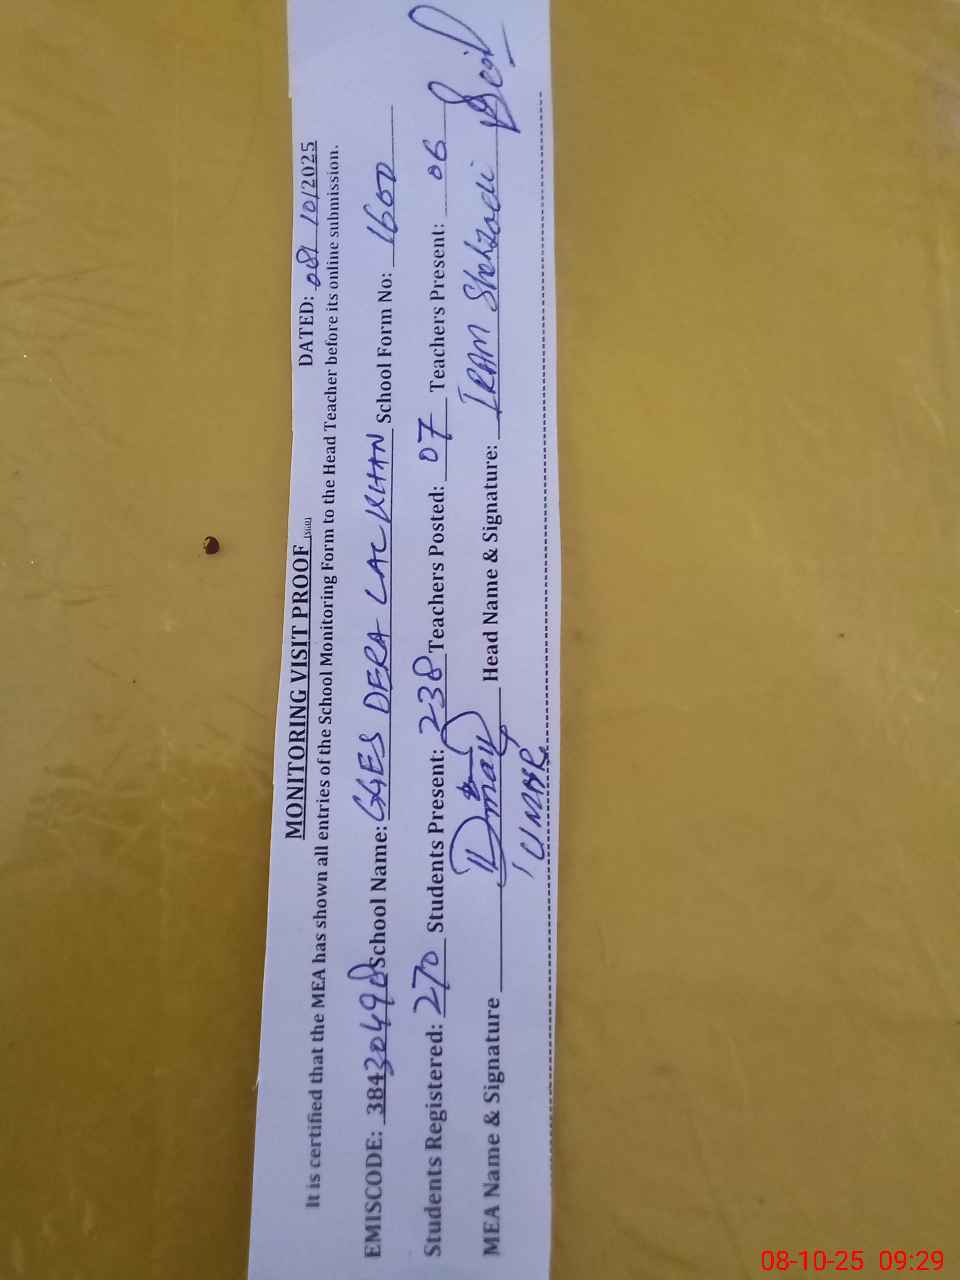 MONITORING VISIT PROOF DATED: 08/10/2025
It is certified that the MEA has shown all entries of the School Monitoring Form to the Head Teacher before its online submission.
EMISCODE: 38430498 School Name: GGES DERA LAL KHAN School Form No: 1600
Students Registered: 270 Students Present: 238 Teachers Posted: 07 Teachers Present: 06
MEA Name & Signature Head Name & Signature: IRAM Shahzadi
UMAR
08-10-25 09:29